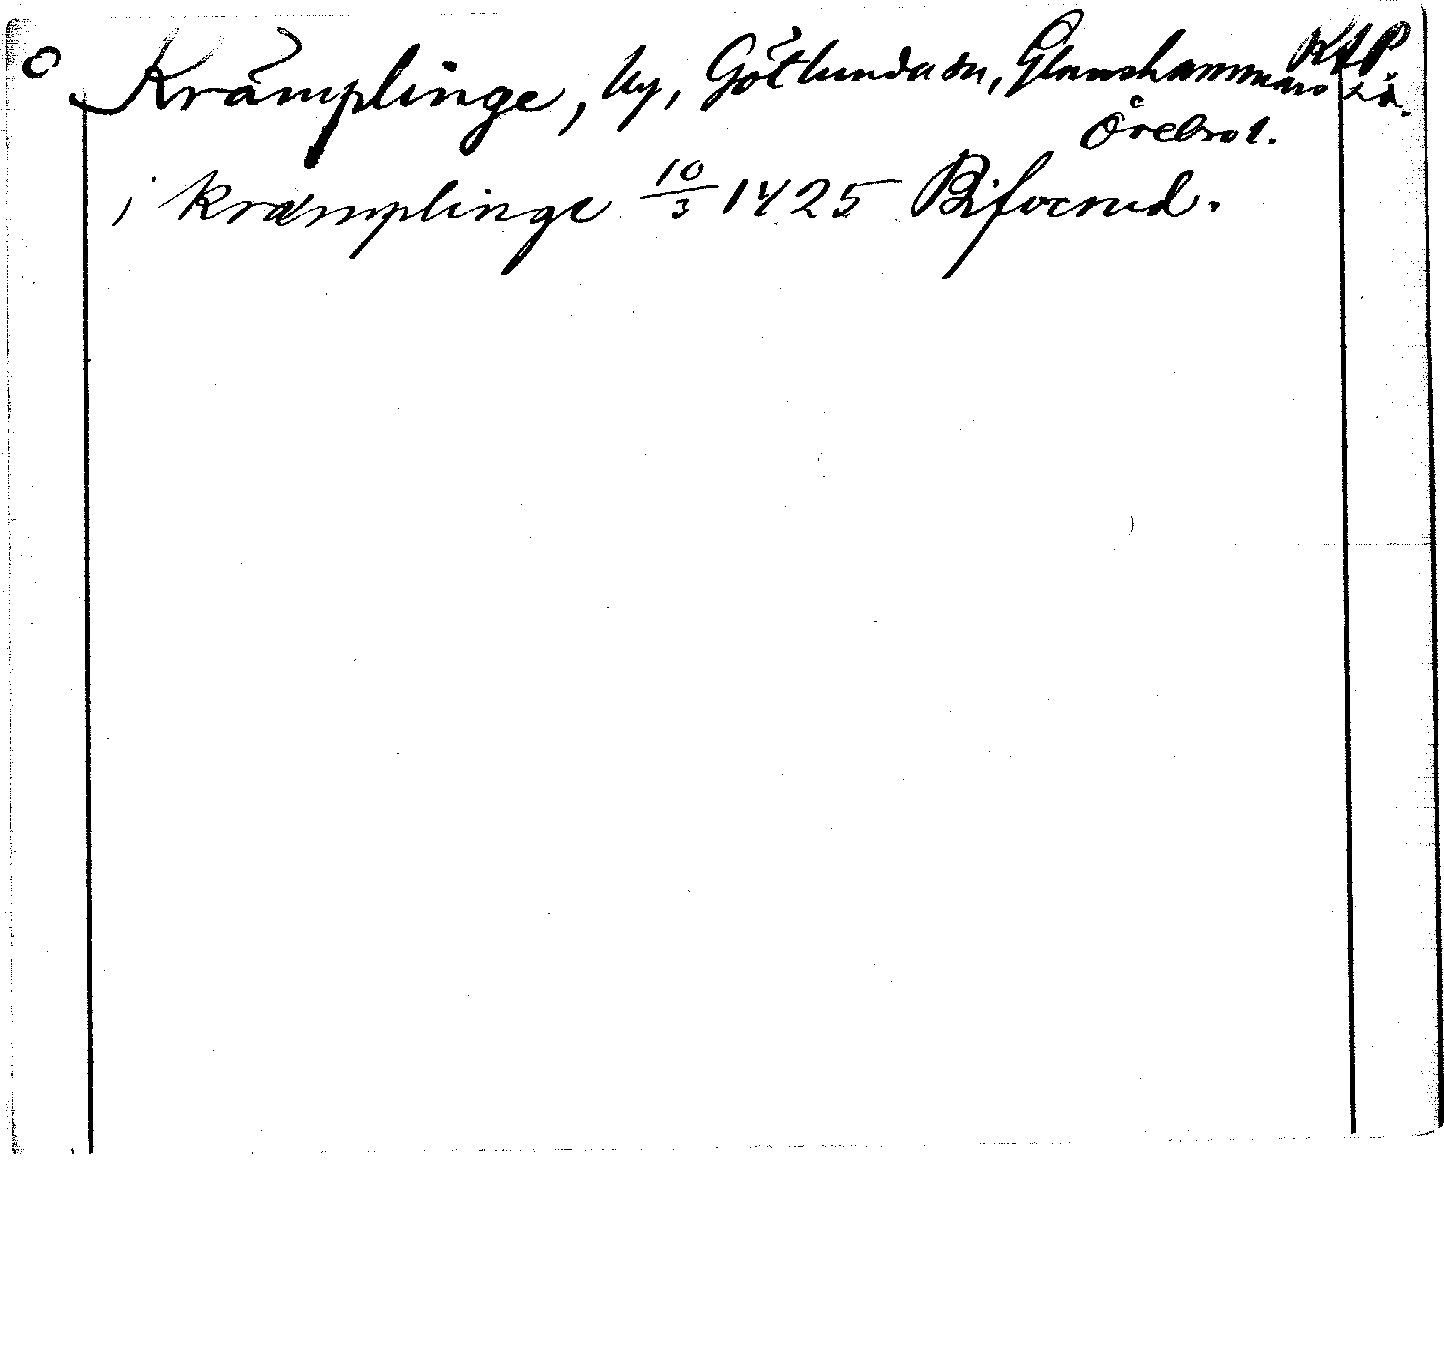 Krämplinge, by, Götlunda sn, Glanshammars hd.
Örebro l.
i kræmplinge 10/3 1425